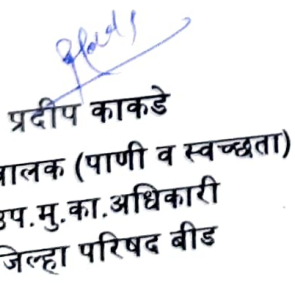 प्रदीप काकडे
(पाणी व स्वच्छता)
उप.मु.का.अधिकारी
जिल्हा परिषद बीड